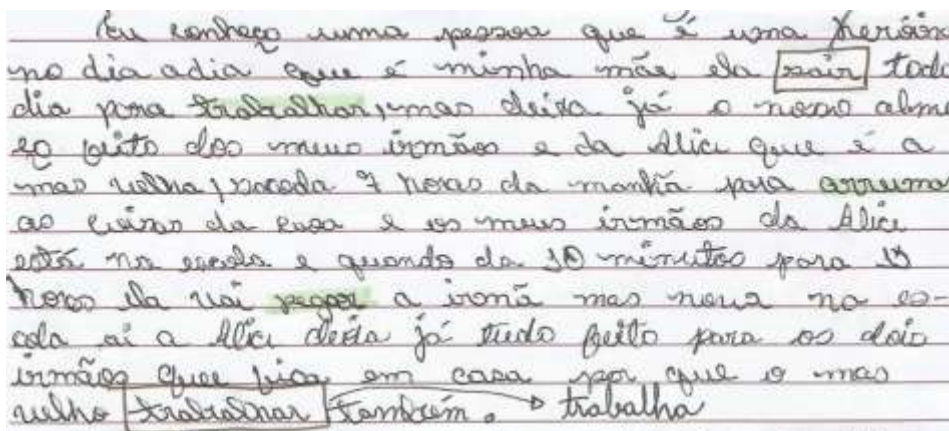 Eu conheço uma pessoa que é uma heróina
no dia adia que é minha mãe ela sair todo
dia pra trabalhar, mas deixa já o nosso almo
ço feito dos meus irmãos e da Alice que é a
mas velha, acoada 7 horas da manhã para arrumar
as coisas da casa e os meus irmãos da Alice
está na escola e quando da 10 minutos para
horas ela vai pegar a irmã mas nova na es-
cola ai a Alice deixa já tudo feito para os dois
irmãos que fica em casa por que o mas
velho trabalhar também. trabalha